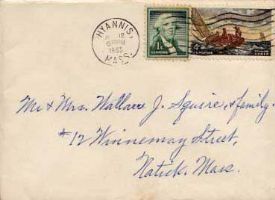 HYANNIS
MASS.
Mr & Mrs. Wallace J. Squire & family
#12 Winnemay Street,
Natick, Mass.